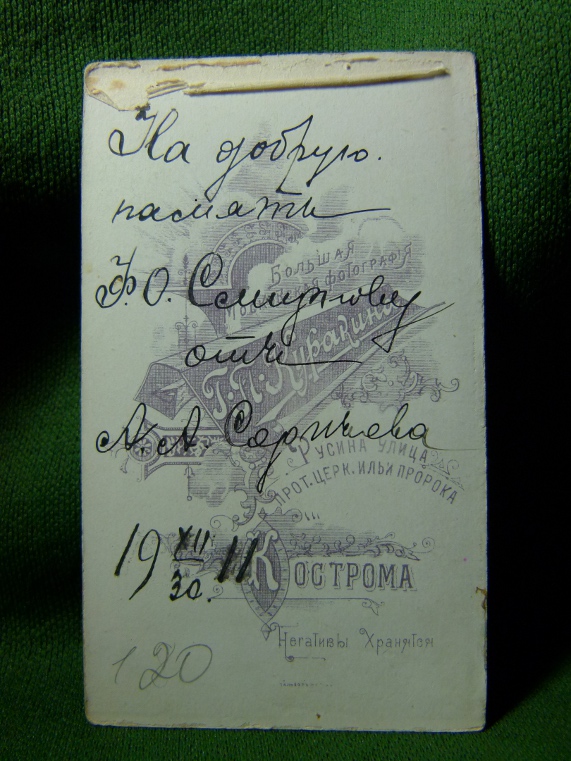 На добрую.
память
Ф. О. Смирнову
отъ
А. А.
19 XII/30. 11
120
Большая
Московская фотографія
Г. П. Куракина
Русина улица
прот. церк. Ильи пророка
Кострома
Негативы Хранятся